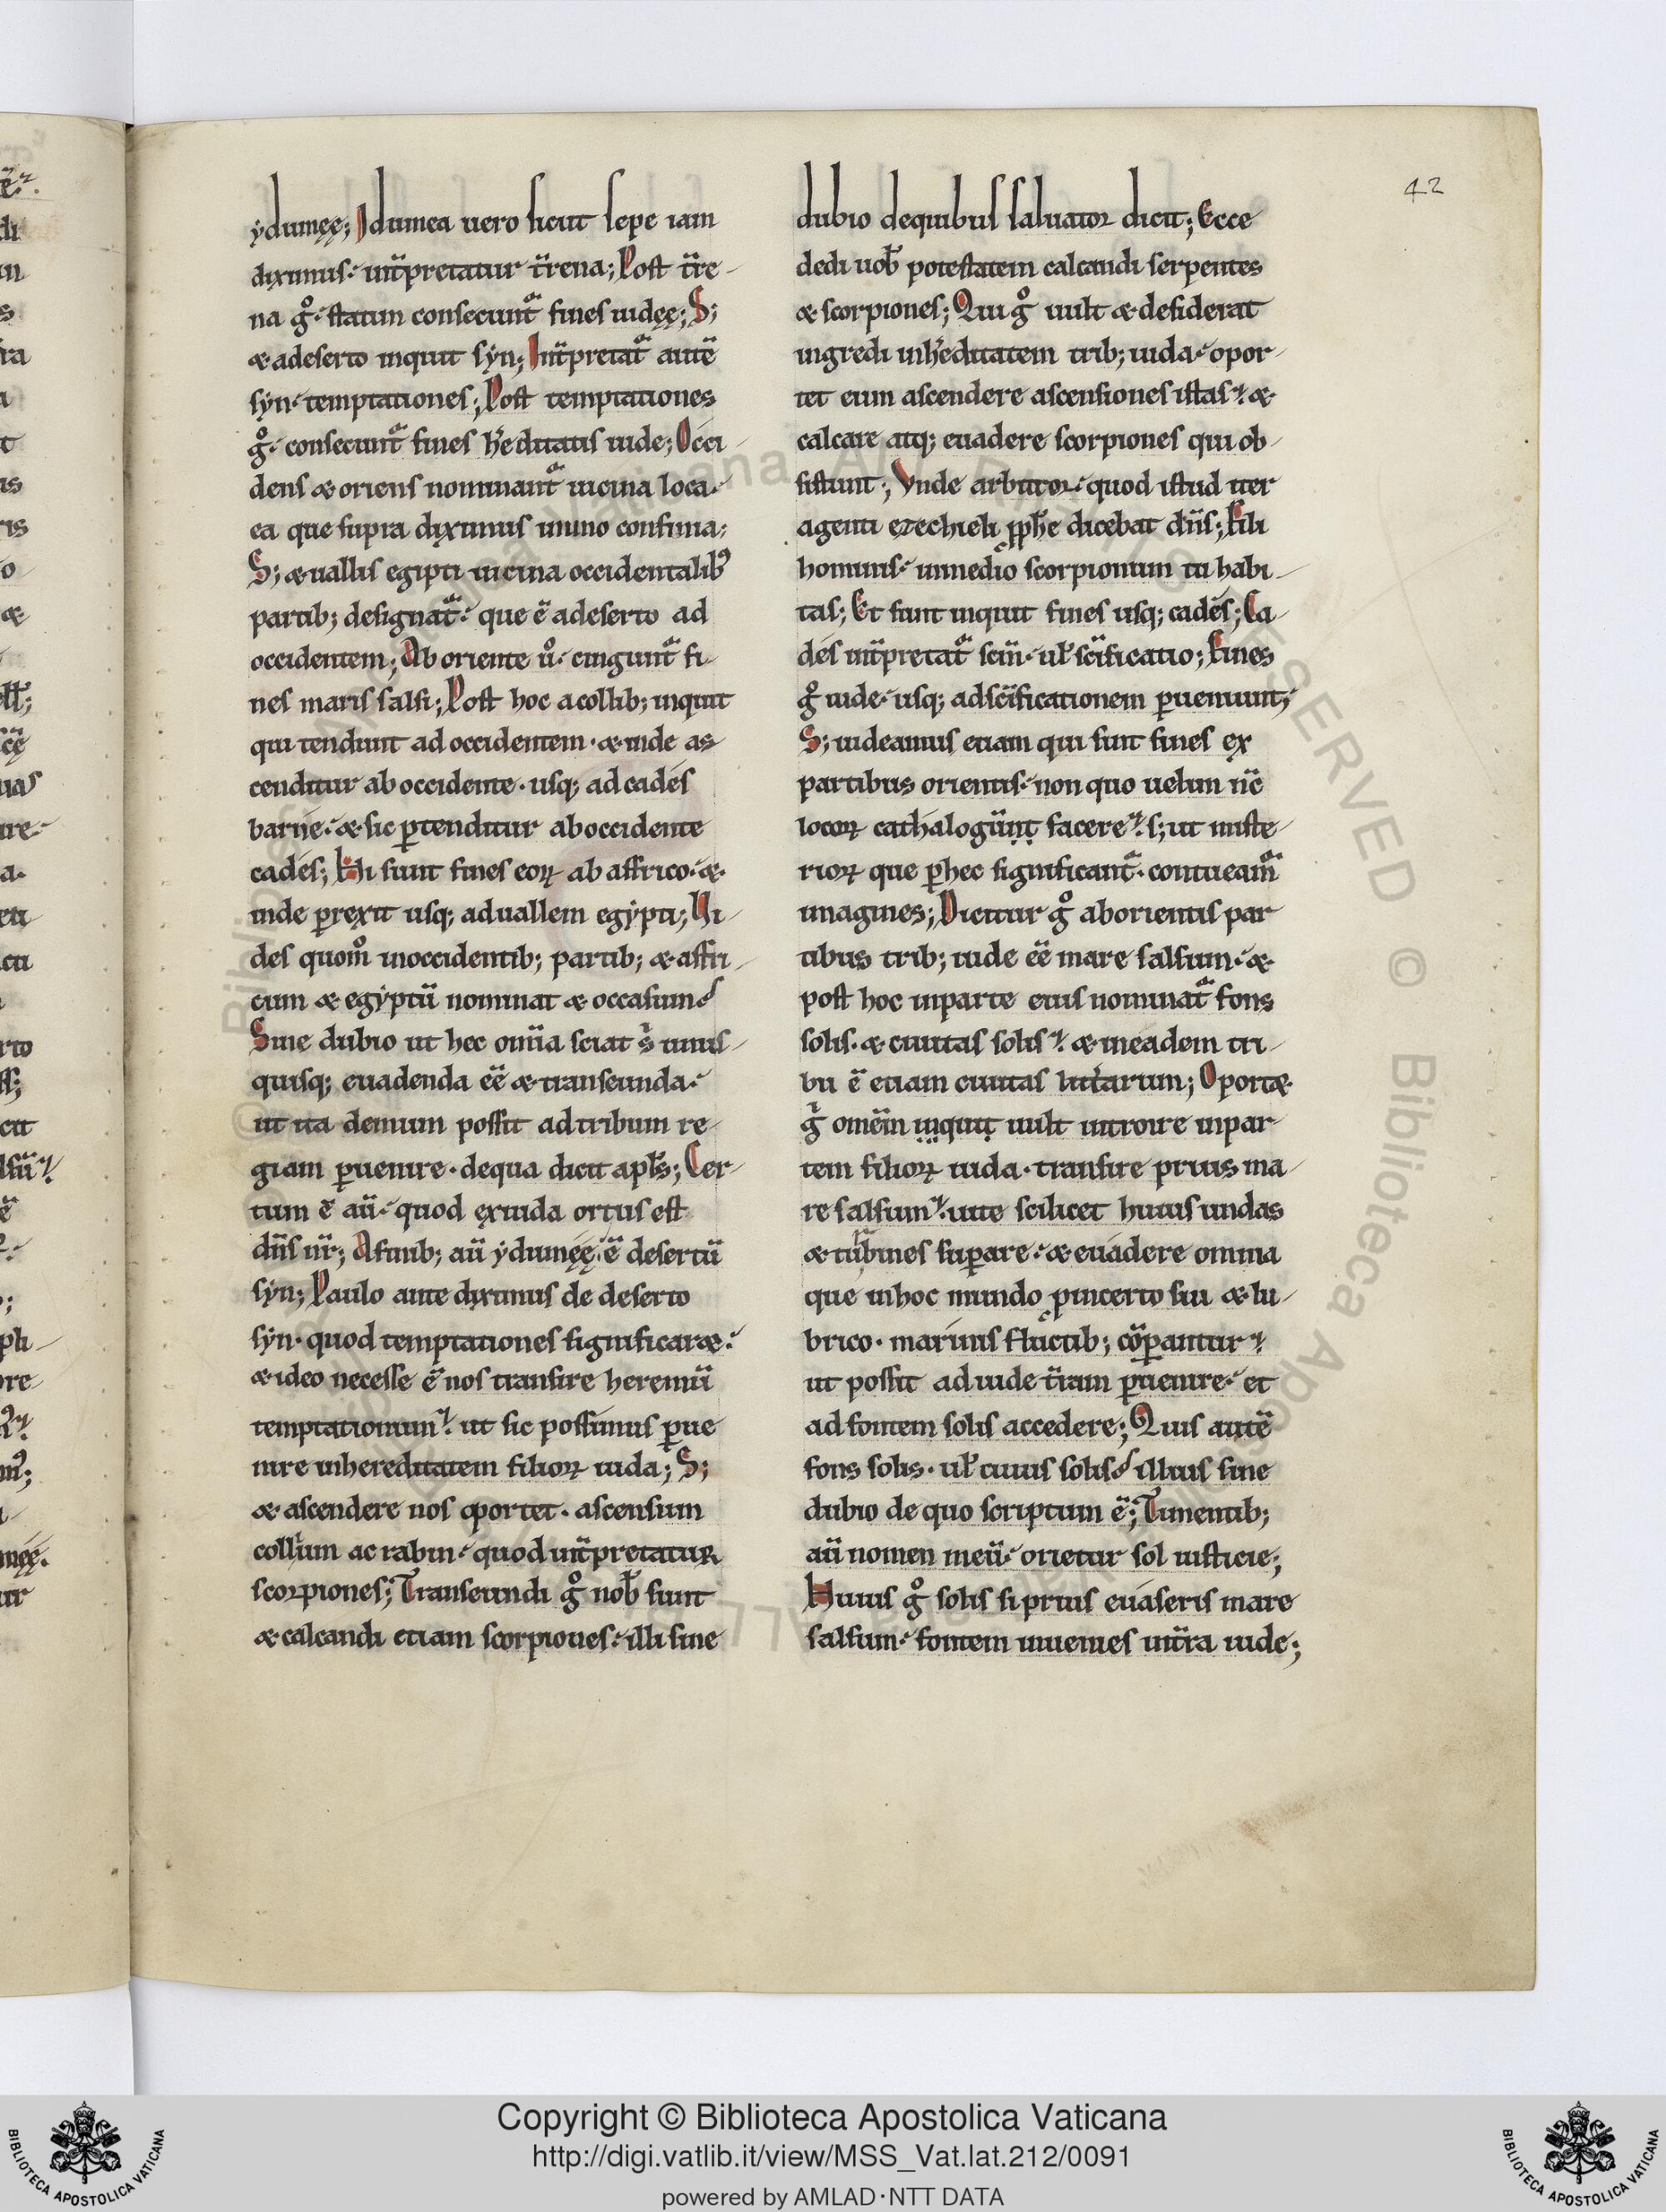 ydumęę; Idumea uero sicut sepe iam
diximus. int̄pretatur t̄rena; Post t̄re-
na gͦ. statim consecunt᷑ fines iudęę; S;
& adeserto inquit syn; Int̄pretat᷑ autē
syn. temptationes; Post temptationes
gͦ. consecunt᷑ fines h̄editatis iude; Occi-
dens & oriens nominant᷑ uicina loca.
ea que supra diximus inuno confinia;
S; & uallis egipti uicina occidentalibꝰ
partib; designat᷑. que ē adeserto ad
occidentem; Ab oriente uͦ. cingunt᷑ fi-
nes maris salsi; Post hoc acollib; inquit
qui tendunt ad occidentem. & inde as-
cenditur ab occidente. usq; ad cades
barne. & sic ꝑtenditur aboccidente
cades; Hi sunt fines eoꝝ ab affrico. &
inde ꝑrexit usq; aduallem egypti; Ui-
des quom̊ inoccidentib; partib; & affri-
cum & egyptū nominat & occasum.
Sine dubio ut hec om̄ia sciat s̍ unus-
quisq; euadenda ēē & transeunda.
ut ita demum possit adtribum re-
giam ꝑuenire. dequa dicit apl̄s; Cer-
tum ē aū. quod exiuda ortus est
dn̄s nr̄; Afinib; aū ydumęę. ē desertū
syn; Paulo ante diximus de deserto
syn. quod temptationes significar&.
& ideo necesse ē nos transire heremū
temptationum. ut sic possimus ꝑue
nire inhereditatem filioꝝ iuda; S;
& ascendere nos oportet. ascensum
collium acrabin. quod int̄pretatur
scorpiones; Transeundi gͦ nob̄ sunt
& calcandi etiam scorpiones. illi sine
dubio dequibus saluator dicit; Ecce
dedi uob̄ potestatem calcandi serpentes
& scorpiones; Qui gͦ uult & desiderat
ingredi inh̄editatem trib; iuda. opor-
tet eum ascendere ascensiones istas. &
calcare atq; euadere scorpiones qui ob-
sistunt; Vnde arbitror. quod istud iter
agenti ezechieli ꝓph̄e dicebat dn̄s; Fili
hominis. inmedio scorpionum tu habi-
tas; Et sunt inquit fines usq; cades; Ca-
des int̄pretat᷑ sc̄m. ul̄ sc̄ificatio; Fines
gͦ iude. usq; adsc̄ificationem ꝑueniunt;
S; uideamus etiam qui sunt fines ex
partibus orientis. non quo uelim nc̄
locoꝝ cathalogūṇṭ facere. s; ut miste-
rioꝝ que ꝑhec significant᷑. contueam᷑
imagines; Dicitur gͦ aborientis par
tibus trib; iude ēē mare salsum. &
post hoc inparte eius nominat᷑ fons
solis. & ciuitas solis. & ineadem tri-
bu ē etiam ciuitas litt̄arum; Oport&
g̍ omēm inquit uult introire inpar-
tem filioꝝ iuda. transire prius ma-
re salsum. uite scilicet huius undas
& turbines suꝑare. & euadere omnia
que inhoc mundo ꝓincerto sui & lu-
brico. marinis fluctib; cōꝑantur.
ut possit ad iude t̄ram ꝑuenire. et
ad fontem solis accedere; Quis autē
fons solis. ul̄ cuius solis. illius sine
dubio de quo scriptum ē; Timentib;
aū nomen meū. orietur sol iusticie;
Huius gͦ solis si prius euaseris mare
salsum. fontem inuenies int̄ra iude;
42
Copyright © Biblioteca Apostolica Vaticana
http://digi.vatlib.it/view/MSS_Vat.lat.212/0091
powered by AMLAD·NTT DATA
BIBLIOTECA APOSTOLICA VATICANA
BIBLIOTECA APOSTOLICA VATICANA